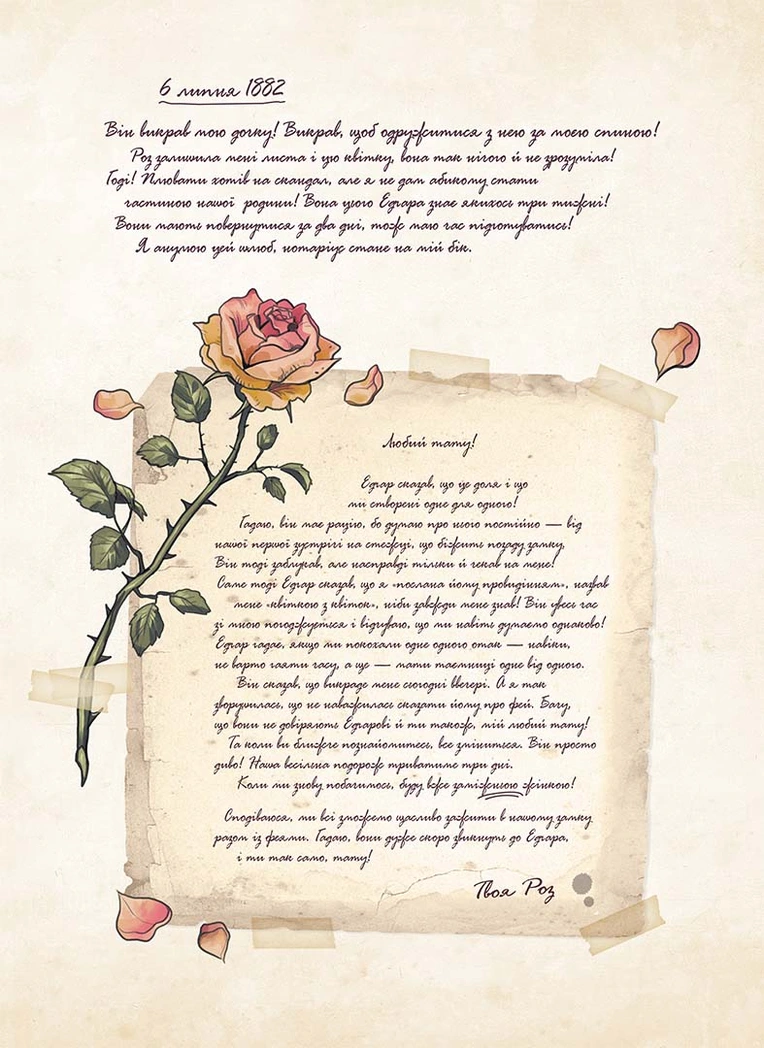 6 липня 1882
Він викрав мою дочку! Викрав, щоб одружитися з нею за моєю спиною!
Роз залишила мені листа і цю квітку, вона так нічого й не зрозуміла!
Годі! Плювати хотів на скандал, але я не дам абикому стати
частиною нашої родини! Вона цього Едгара знає якихось три тижні!
Вони мають повернутися за два дні, тож маю час підготуватись!
Я анулюю цей шлюб, нотаріус стане на мій бік.
Любий тату!
Едгар сказав, що це доля і що
ми створені одне для одного!
Гадаю, він має рацію, бо думаю про нього постійно — від
нашої першої зустрічі на стежці, що біжить позаду замку,
Він тоді заблукав, але насправді тільки й чекав на мене!
Саме тоді Едгар сказав, що я «послана йому провидінням», назвав
мене «квіткою з квіток», ніби завжди мене знав! Він увесь час
зі мною погоджується і відчуваю, що ми навіть думаємо однаково!
Едгар гадає, якщо ми покохали одне одного отак — навіки,
не варто гаяти часу, а ще — мати таємниці одне від одного.
Він сказав, що викраде мене сьогодні ввечері. А я так
зворушилась, що не наважилась сказати йому про фей. Бачу,
що вони не довіряють Едгарові й ти також, мій любий тату!
Та коли ви ближче познайомитесь, все зміниться. Він просто
диво! Наша весільна подорож триватиме три дні.
Коли ми знову побачимось, буду вже заміжньою жінкою!
Сподіваюся, ми всі зможемо щасливо зажити в нашому замку
разом із феями. Гадаю, вони дуже скоро звикнуть до Едгара,
і ти так само, тату!
Твоя Роз